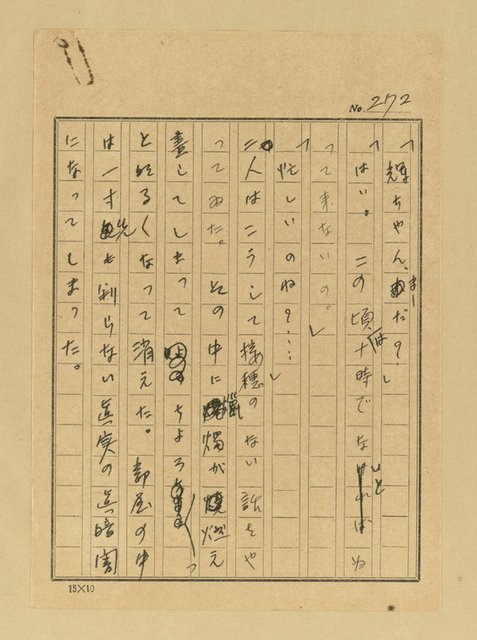 No. 272
「輝ちやん、まーだ？」
「はい。この頃は十時でないとね
つて来ないの。」
「忙しいのね？…」
二人はこうして接穂のない話をや
つてゐた。その中に蠟燭が燃え
盡してしまつて ちよろつ
と明るくなつて消えた。部屋の中
は一寸先も判らない眞実の眞暗闇
になつてしまつた。
15×10